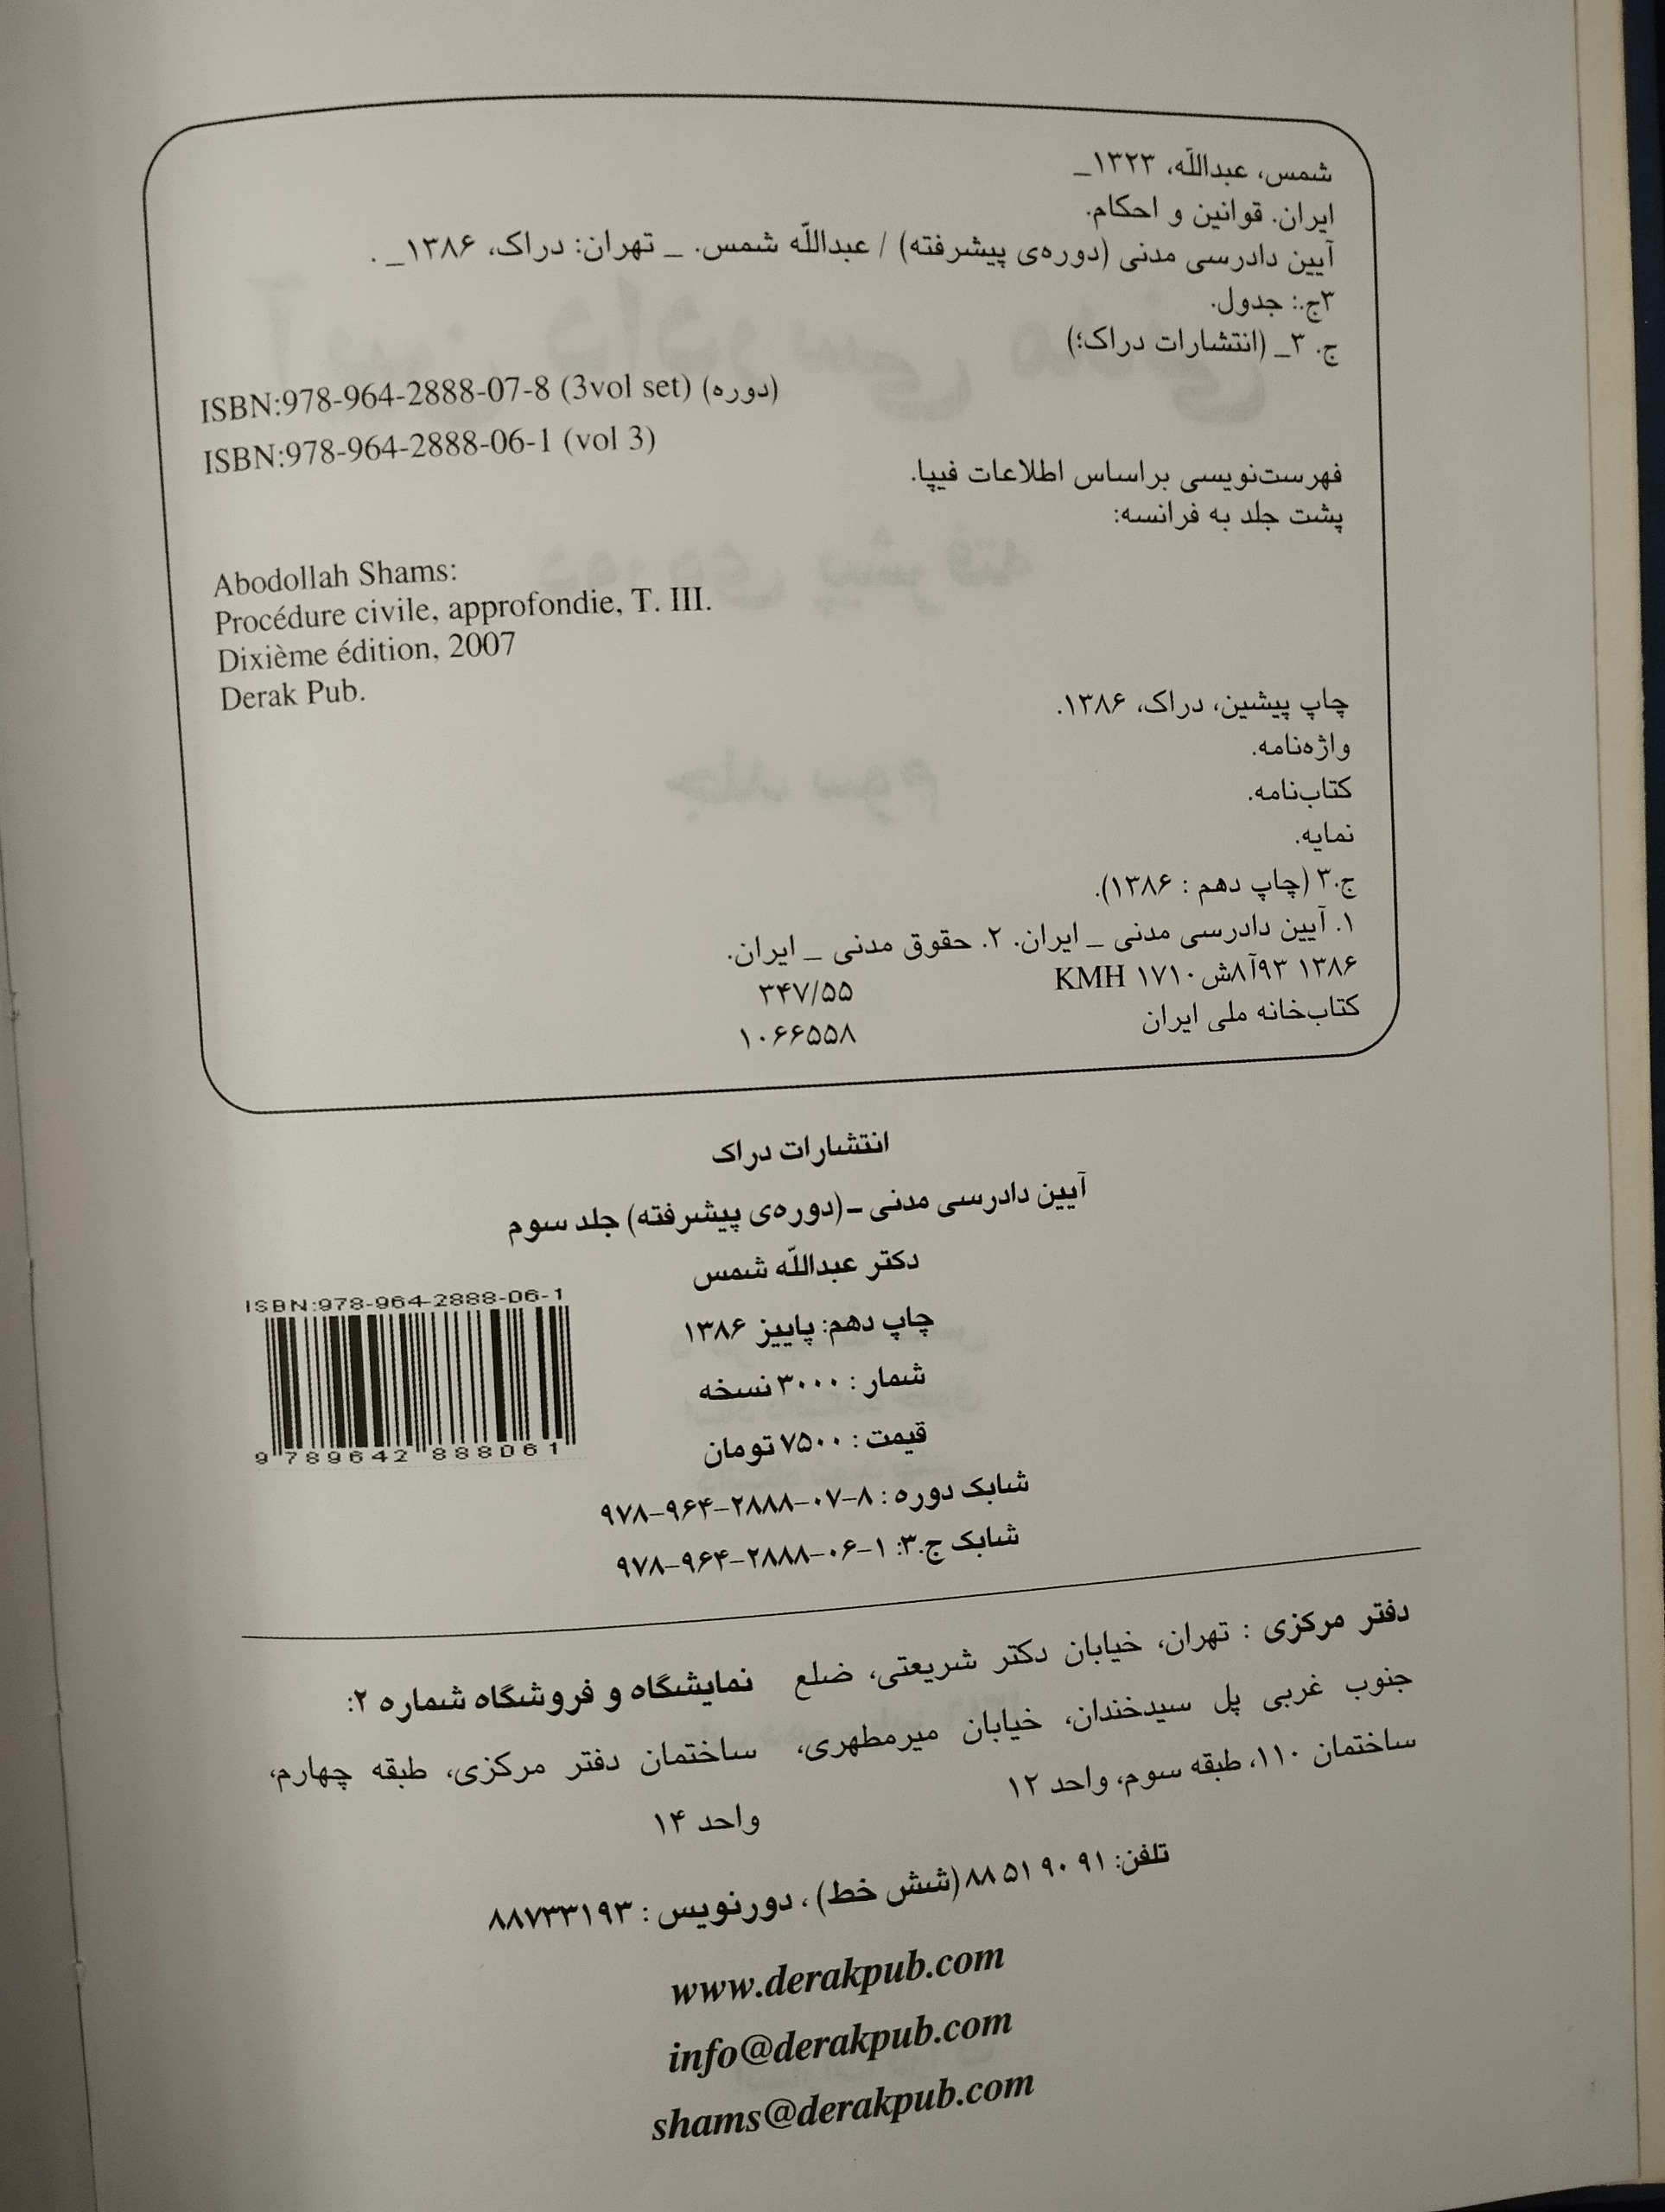 شمس، عبداللّه، ۱۳۲۳_
ایران. قوانین و احکام.
آیین دادرسی مدنی (دوره‌ی پیشرفته) / عبداللّه شمس. _ تهران: دراک، ۱۳۸۶_ .
۳ج.: جدول.
ج. ۳_ (انتشارات دراک؛)
ISBN:978-964-2888-07-8 (3vol set) (دوره)
ISBN:978-964-2888-06-1 (vol 3)
فهرست‌نویسی براساس اطلاعات فیپا.
پشت جلد به فرانسه:
Abodollah Shams:
Procédure civile, approfondie, T. III.
Dixième édition, 2007
Derak Pub.
چاپ پیشین، دراک، ۱۳۸۶.
واژه‌نامه.
کتاب‌نامه.
نمایه.
ج.۳ (چاپ دهم : ۱۳۸۶).
۱. آیین دادرسی مدنی _ ایران. ۲. حقوق مدنی _ ایران.
۱۳۸۶ ۹۳آ۸ش۱۷۱۰ KMH ۳۴۷/۵۵
کتاب‌خانه ملی ایران ۱۰۶۶۵۵۸
انتشارات دراک
آیین دادرسی مدنی -(دوره‌ی پیشرفته) جلد سوم
دکتر عبداللّه شمس
ISBN:978-964-2888-06-1
چاپ دهم: پاییز ۱۳۸۶
شمار : ۳۰۰۰ نسخه
قیمت : ۷۵۰۰ تومان
9 789642 888061
شابک دوره : ۸-۰۷-۲۸۸۸-۹۶۴-۹۷۸
شابک ج.۳: ۱-۰۶-۲۸۸۸-۹۶۴-۹۷۸
دفتر مرکزی : تهران، خیابان دکتر شریعتی، ضلع
جنوب غربی پل سیدخندان، خیابان میرمطهری،
ساختمان ۱۱۰، طبقه سوم، واحد ۱۲
نمایشگاه و فروشگاه شماره ۲:
ساختمان دفتر مرکزی، طبقه چهارم،
واحد ۱۴
تلفن: ۹۱ ۹۰ ۵۱ ۸۸ (شش خط) ، دورنویس : ۸۸۷۳۳۱۹۳
www.derakpub.com
info@derakpub.com
shams@derakpub.com